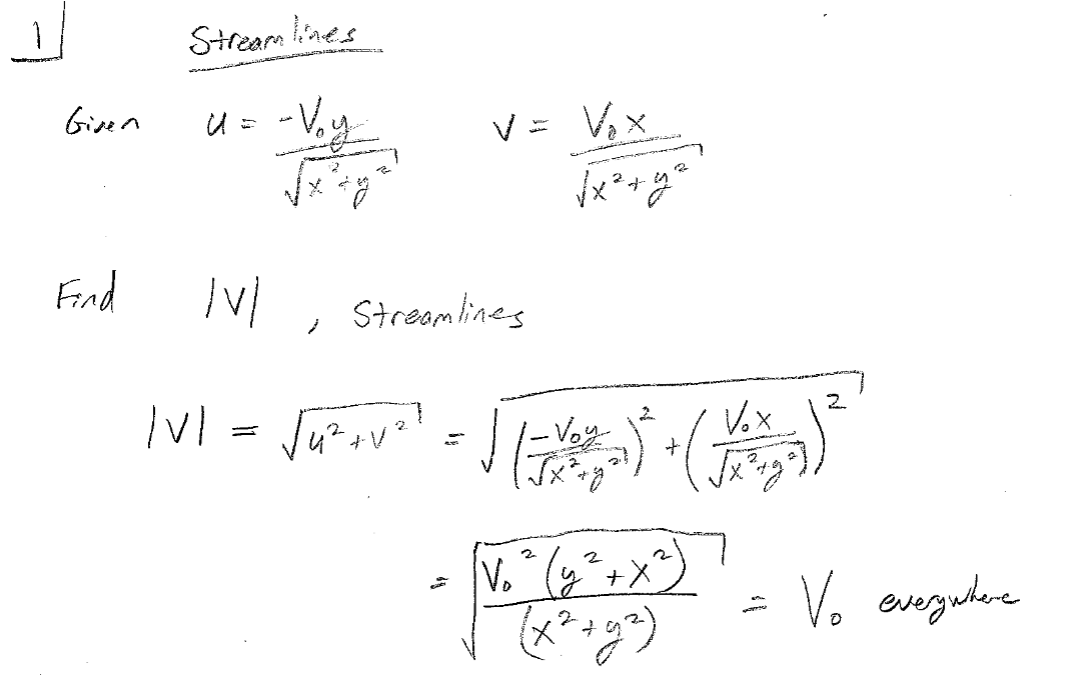 1 Streamlines
Given u = -V₀y / √(x²+y²) v = V₀x / √(x²+y²)
Find |V| , Streamlines
|V| = √(u²+v²) = √((-V₀y / √(x²+y²))² + (V₀x / √(x²+y²))²)
= √(V₀²(y²+x²) / (x²+y²)) = V₀ everywhere